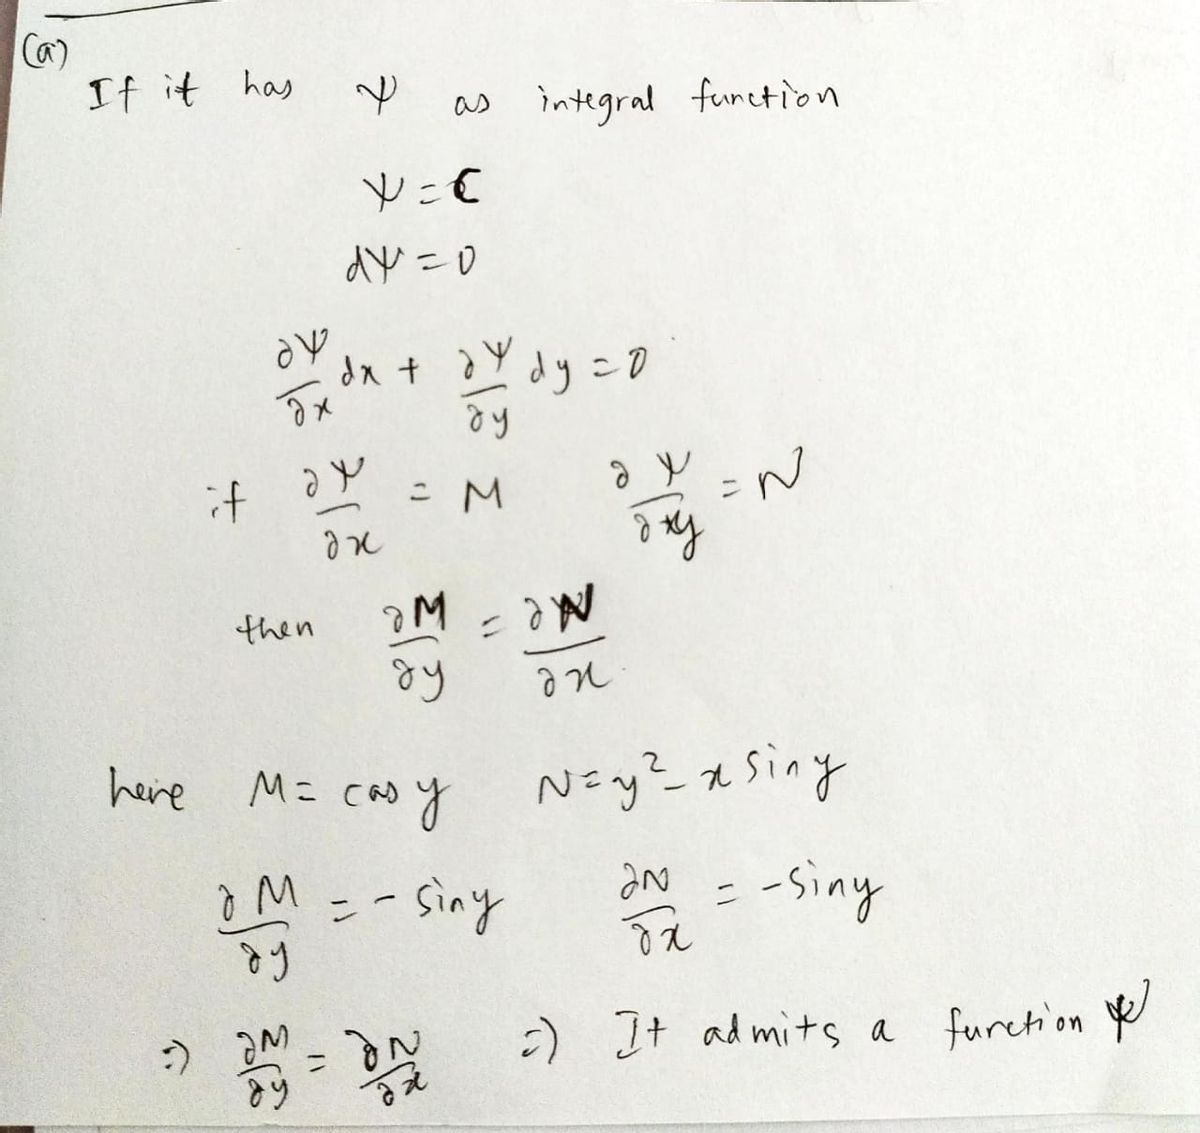 (a)
If it has ψ as integral function
ψ = C
dψ = 0
∂ψ/∂x dx + ∂ψ/∂y dy = 0
if ∂ψ/∂x = M ∂ψ/∂y = N
then ∂M/∂y = ∂N/∂x
here M = cos y N = y² - x sin y
∂M/∂y = - sin y ∂N/∂x = - sin y
⇒ ∂M/∂y = ∂N/∂x ⇒ It admits a function ψ